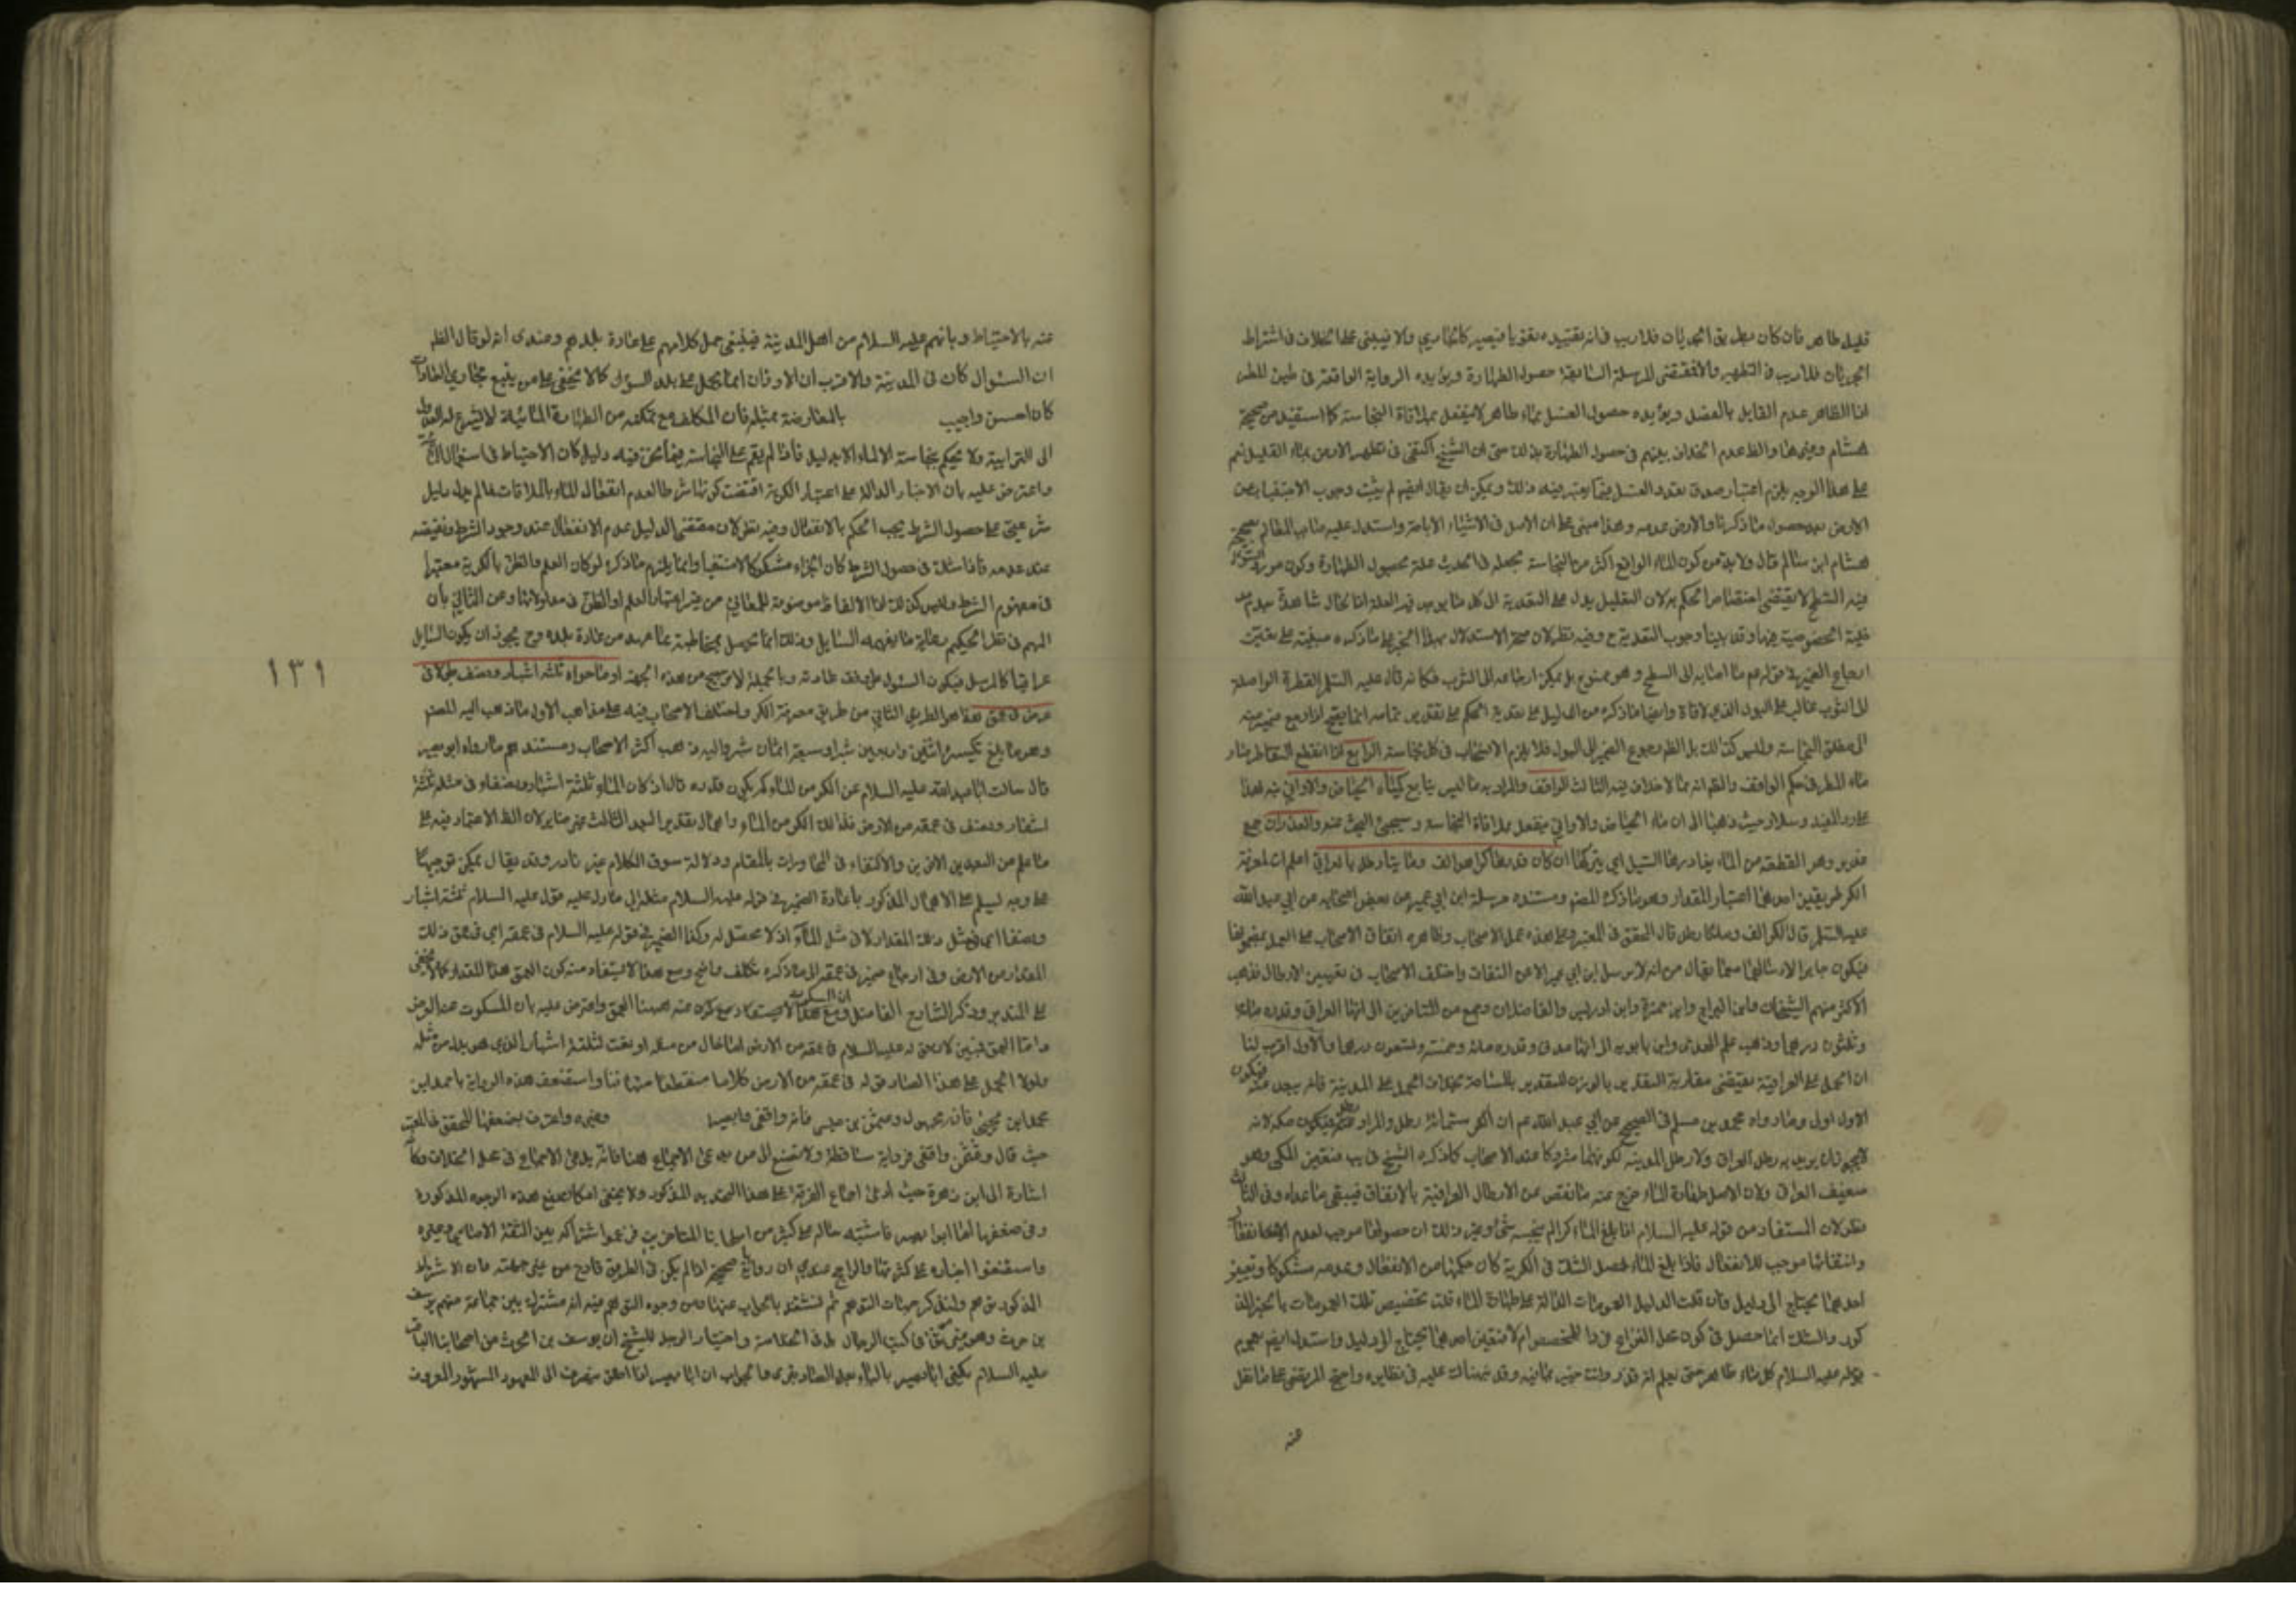 قليل طاهر فان كان بطريق الجريان فلاريب في انه يفيده تقويا فيصير كالجاري والا فيبنى على الخلاف في اشتراط
الجريان فلاريب في التطهير والا فمقتضى المرسلة السابقة حصول الطهارة ويؤيده الرواية الواقعة في طين المطر
اذا الظاهر عدم القايل بالفصل ويؤيده حصول الغسل بماء طاهر لا ينفعل بملاقاة النجاسة كما استفيد من صحيحة
هشام وغيرها والظ عدم الخلاف بينهم في حصول الطهارة بذلك حتى ان الشيخ اكتفى في تطهير الارض بماء القليل نعم
على هذا الوجه يلزم اعتبار صدق تعدد الغسل فيما يعتبر فيه ذلك ويمكن ان يقال لم يثبت وجوب الاجتناب عن
الارض بعد حصول ما ذكرنا والارض عدمه وهذا مبني على ان الاصل في الاشياء الاباحة واستدل عليه صاحب المعالم بصحيحة
هشام ابن سالم قال ولابد من كون الماء الواقع اكثر من النجاسة بجعله في الحديث علة لحصول الطهارة وكون مورد السؤال
فيه السطح لا يقتضي اختصاص الحكم به لان التعليل يدل على التعدية الى كل ما يوجد فيه العلة اذا كان الحال شاهدة بعدم
الخصوصية فيها وقد بينا وجوب التعدية ح وفيه نظر لان صحة الاستدلال بهذا الخبر على ما ذكره مبنية على تعين
ارجاع الضمير في قوله عم ما اصابه الى السطح وهو ممنوع بل يمكن ارجاعه الى الثوب فكانه قال عليه السلم القطرة الواصلة
الى الثوب غالب على البول الذي لاقاه وايضا ما ذكره من الدليل على تعدية الحكم على تقدير تمامه انما يصح اذا رجع ضمير منه
الى مطلق النجاسة وليس كذلك بل الظ رجوع الضمير الى البول فلا يلزم الانسحاب في كل نجاسة الرابع اذا انقطع التقاطر صار
ماء المطر في حكم الواقف والظ انه مما لا خلاف فيه الثالث الواقف والمراد به ما ليس بنابع كمياه الحياض والاواني فيه
على رد المفيد وسلار حيث ذهبا الى ان ماء الحياض والاواني ينفعل بملاقاة النجاسة وسيجئ البحث عنه والغدران جمع
غدير وهو القطعة من الماء يغادرها السيل اي يتركها ان كان قدرها كرا هو الف ومايتا رطل بالعراقي اعلم ان لمعرفة
الكر طريقين احدهما اعتبار المقدار وهو ما ذكره المص ومستنده مرسلة ابن ابي عمير عن بعض اصحابه عن ابي عبد الله
عليه السلم قال الكر الف ومايتا رطل قال المحقق في المعتبر وعلى هذه عمل الاصحاب وظاهره اتفاق الاصحاب على العمل بمضمونها
فيكون جابرا لارسالها مما يقال من انه لا يرسل ابن ابي عمير الا عن الثقات واختلف الاصحاب في تعيين الارطال فذهب
الاكثر منهم الشيخان وابن البراج وابن حمزة وابن ادريس والفاضلان وجمع من المتاخرين الى انها العراقي وقدره ماية
وثلثون درهما وذهب علم الهدى وابن بابويه الى انها مدني وقدره ماية وخمسة وتسعون درهما والاول اقرب لنا
ان الحمل على العراقية يقتضي مقاربة التقدير بالوزن للتقدير بالمساحة بخلاف الحمل على المدينة فانه يبعد عنه فيكون
الاول اولى وما رواه محمد بن مسلم في الصحيح عن ابي عبد الله عم ان الكر ستماية رطل والمراد
لا يجوز ان يريد به رطل العراق ولا رطل المدينة لكونهما متروكا عند الاصحاب كما ذكره الشيخ في يب فتعين المكي وهو
ضعيف العراق ولان الاصل طهارة الماء خرج عنه ما نقص عن الارطال العراقية بالاتفاق فيبقى ما عداه وفي الثاني
نظر لان المستفاد من قوله عليه السلام اذا بلغ الماء كرا لم ينجسه شئ وغير ذلك ان حصولها موجب لعدم الانفعال
وانتفائها موجب للانفعال فاذا بلغ الماء محل الشك في الكرية كان حكمها من الانفعال وعدمه مشكوكا وتعيين
احدهما يحتاج الى دليل فان قلت الدليل العمومات الدالة على طهارة الماء قلت تخصيص تلك العمومات بالخبر المذ
كور والشك انما حصل في كون محل النزاع فردا للمخصص ام لا فتعيين احدهما يحتاج الى دليل واستدل ايضا بعموم
قوله عليه السلام كل ماء طاهر حتى يعلم انه قذر وانت خبير بما فيه وقد نبهناك عليه في نظايره واحتج المرتضى على ما نقل
عنه
عنه بالاحتياط وبانهم عليه السلام من اهل المدينة فينبغي حمل كلامهم على عادة بلدهم وعندي انه لو قال الظ
ان السئوال كان في المدينة والاقرب ان الاوزان انما يحمل على بلد السؤال كما لا يخفى على من يتبع مجاري العادات
كان احسن واجيب بالمعارضة بمثله فان المكلف مع تمكنه من الطهارة المائية لا يشرع له العدول
الى الترابية ولا يحكم بنجاسة الماء الا بدليل فاذا لم يقم على النجاسة فيما نحن فيه دليل كان الاحتياط في استعمال الماء
واعترض عليه بان الاخبار الدالة على اعتبار الكرية اقتضت كونها شرطا لعدم انفعال الماء بالملاقات فما لم يدل دليل
شرعي على حصول الشرط يجب الحكم بالانفعال وفيه نظر لان مقتضى الدليل عدم الانفعال عند وجود الشرط ونقيضه
عند عدمه فاذا شك في حصول الشرط كان الجزاء مشكوكا لا منتفيا وانما يلزم ما ذكره لو كان العلم والظن بالكرية معتبرا
في مفهوم الشرط وليس كذلك لان الالفاظ موضوعة للمعاني من غير اعتبار العلم او الظن في مدلولاتها وعن الثاني بان
المهم في نظر الحكيم رعاية ما يفهمه السايل وذلك انما يحصل بمخاطبة بما يعهد من عادة بلده وح يجوز ان يكون السايل
عراقيا كالمرسل فيكون السئول على وفق عادته وبالجملة لا ترجيح من هذه الجهة او ما حواه ثلثة اشبار ونصف طولا في
عرض في عمق هذا هو الطريق الثاني من طريقي معرفة الكر واختلف الاصحاب فيه على مذاهب الاول ما ذهب اليه المص
وهو ما بلغ تكسيره اثنين واربعين شبرا وسبعة اثمان شبر واليه ذهب اكثر الاصحاب ومستندهم ما رواه ابو بصير
قال سالت ابا عبد الله عليه السلام عن الكر من الماء كم يكون قدره قال اذا كان الماء ثلثة اشبار ونصفا في مثله ثلثة
اشبار ونصف في عمقه من الارض فذلك الكر من الماء واهمال تقدير البعد الثالث غير ضاير لان الظ الاعتماد فيه على
ما علم من البعدين الاخرين والاكتفاء في المحاورات بالمقام ودلالة سوق الكلام غير نادر وقد يقال يمكن توجيهها
على وجه ليسلم على الاهمال المذكور باعادة الضمير في قوله عليه السلام مثله الى ما دل عليه قوله عليه السلام ثلثة اشبار
ونصفا اي في مثل ذلك المقدار لا في مثل الماء اذ لا محصل له وكذا الضمير في قوله عليه السلام في عمقه اي في عمق ذلك
المقدار من الارض وفي ارجاع ضمير في عمقه الى ما ذكره تكلف واضح ومع هذا لا يستفاد منه كون العمق هذا المقدار كما لا يخفى
على المتدبر وذكر الشارح الفاضل ان السكوت عنه هيهنا العمق واعترض عليه بان المسكوت عنه العرض
واما العمق فمبين لان قوله عليه السلام في عمقه من الارض اما حال من مثله او نعت لثلثة اشبار الذي هو بدل من مثله
ولولا الحمل على هذا لصار قوله في عمقه من الارض كلاما منقطعا متهافتا واستضعف هذه الرواية باحمد بن
محمد ابن يحيى فانه مجهول وعثمن بن عيسى فانه واقفي وابي بصير وغيره واعترف بضعفها المحقق في المعتبر
حيث قال وعثمن واقفي فروايته ساقطة ولا تصغ الى من يدعي الاجماع هنا فانه يدعي الاجماع في محل الخلاف وكانه
اشارة الى ابن زهرة حيث ادعى اجماع الفرقة على هذا التحديد المذكور ولا يخفى امكان منع هذه الوجوه المذكورة
وفي ضعفها اما ابو بصير فاشتبه حاله على كثير من اصحابنا المتاخرين فزعموا اشتراكه بين الثقة الامامي وغيره
واستضعفوا اخباره على كثرتها والراجح عندي ان روايته صحيحة اذا لم يكن في الطريق قادح من غير جهته فان الاشتراك
المذكور توهم ولنذكر جهات التوهم ثم نشتغل بالجواب عنها فمن وجوه التوهم فيه انه مشترك بين جماعة منهم يوسف
بن حرث وهو بتري كما في كتب الرجال بل في الخلاصة واختيار الرجال للشيخ ان يوسف بن الحرث من اصحاب الباقر
عليه السلام يكنى ابا بصير بالياء بعد الصاد بتري والجواب ان ابا بصير اذا اطلق ينصرف الى المعهود المشهور المعروف
١٣١